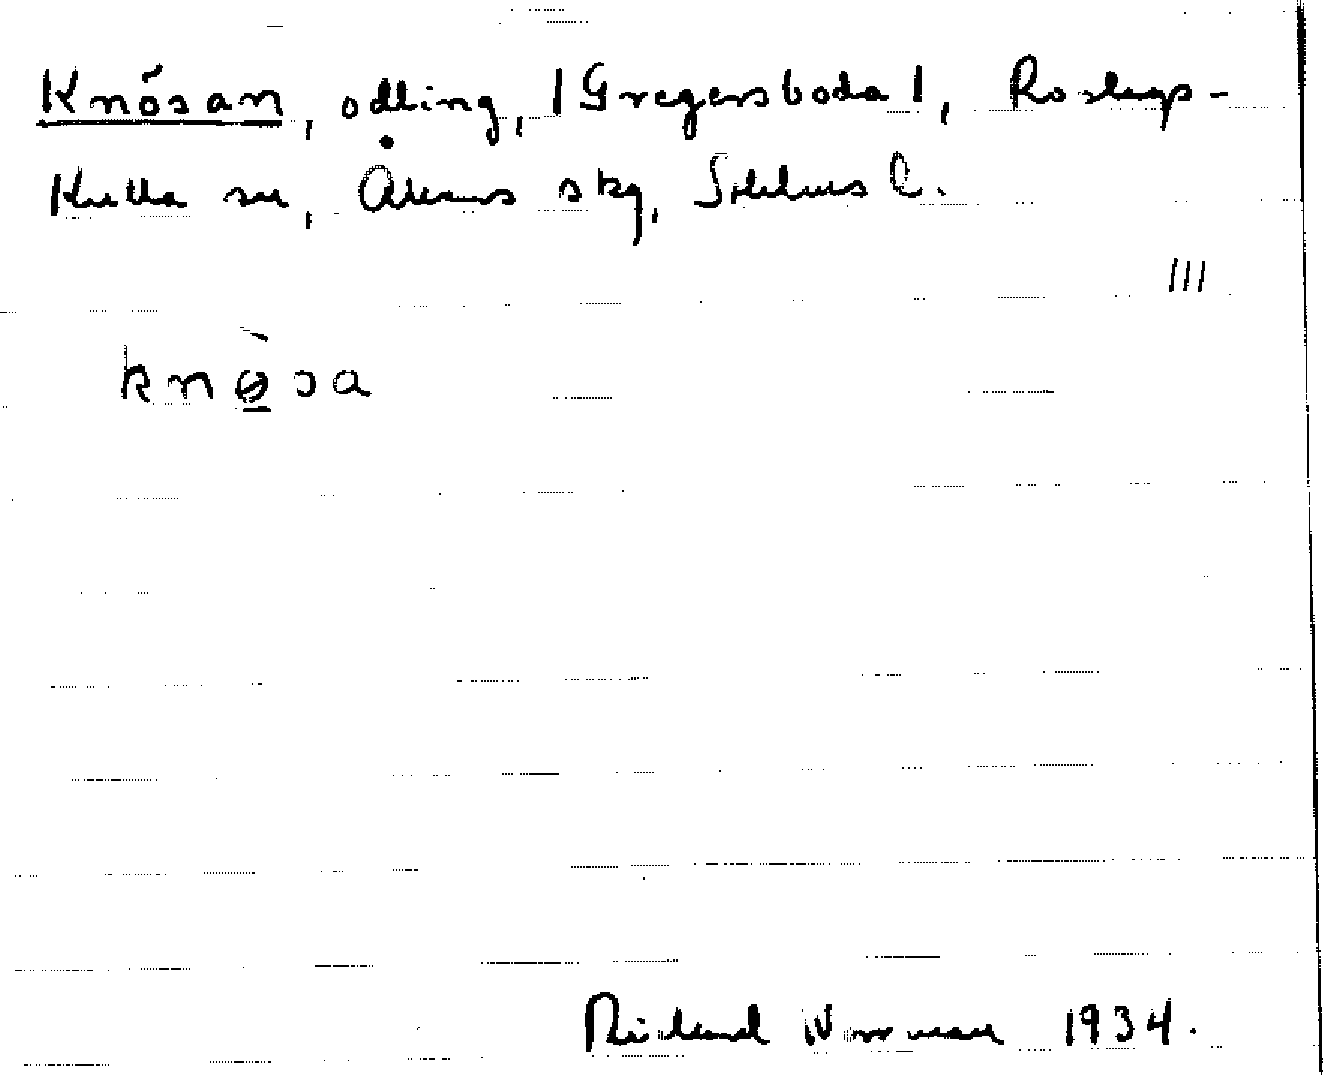 Knösan, odling, |Gregersboda|, Roslags-
Kulla sn, Åkers skg, Sthlms l.
III
knø̀sa
Rickard Norrman 1934.